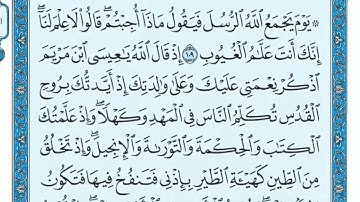 ۞ يَوْمَ يَجْمَعُ ٱللَّهُ ٱلرُّسُلَ فَيَقُولُ مَاذَآ أُجِبْتُمْ ۖ قَالُوا۟ لَا عِلْمَ لَنَآ ۖ
إِنَّكَ أَنتَ عَلَّـٰمُ ٱلْغُيُوبِ ١٠٩ إِذْ قَالَ ٱللَّهُ يَـٰعِيسَى ٱبْنَ مَرْيَمَ
ٱذْكُرْ نِعْمَتِى عَلَيْكَ وَعَلَىٰ وَٰلِدَتِكَ إِذْ أَيَّدتُّكَ بِرُوحِ
ٱلْقُدُسِ تُكَلِّمُ ٱلنَّاسَ فِى ٱلْمَهْدِ وَكَهْلًا ۖ وَإِذْ عَلَّمْتُكَ
ٱلْكِتَـٰبَ وَٱلْحِكْمَةَ وَٱلتَّوْرَىٰةَ وَٱلْإِنجِيلَ ۖ وَإِذْ تَخْلُقُ
مِنَ ٱلطِّينِ كَهَيْـَٔةِ ٱلطَّيْرِ بِإِذْنِى فَتَنفُخُ فِيهَا فَتَكُونُ